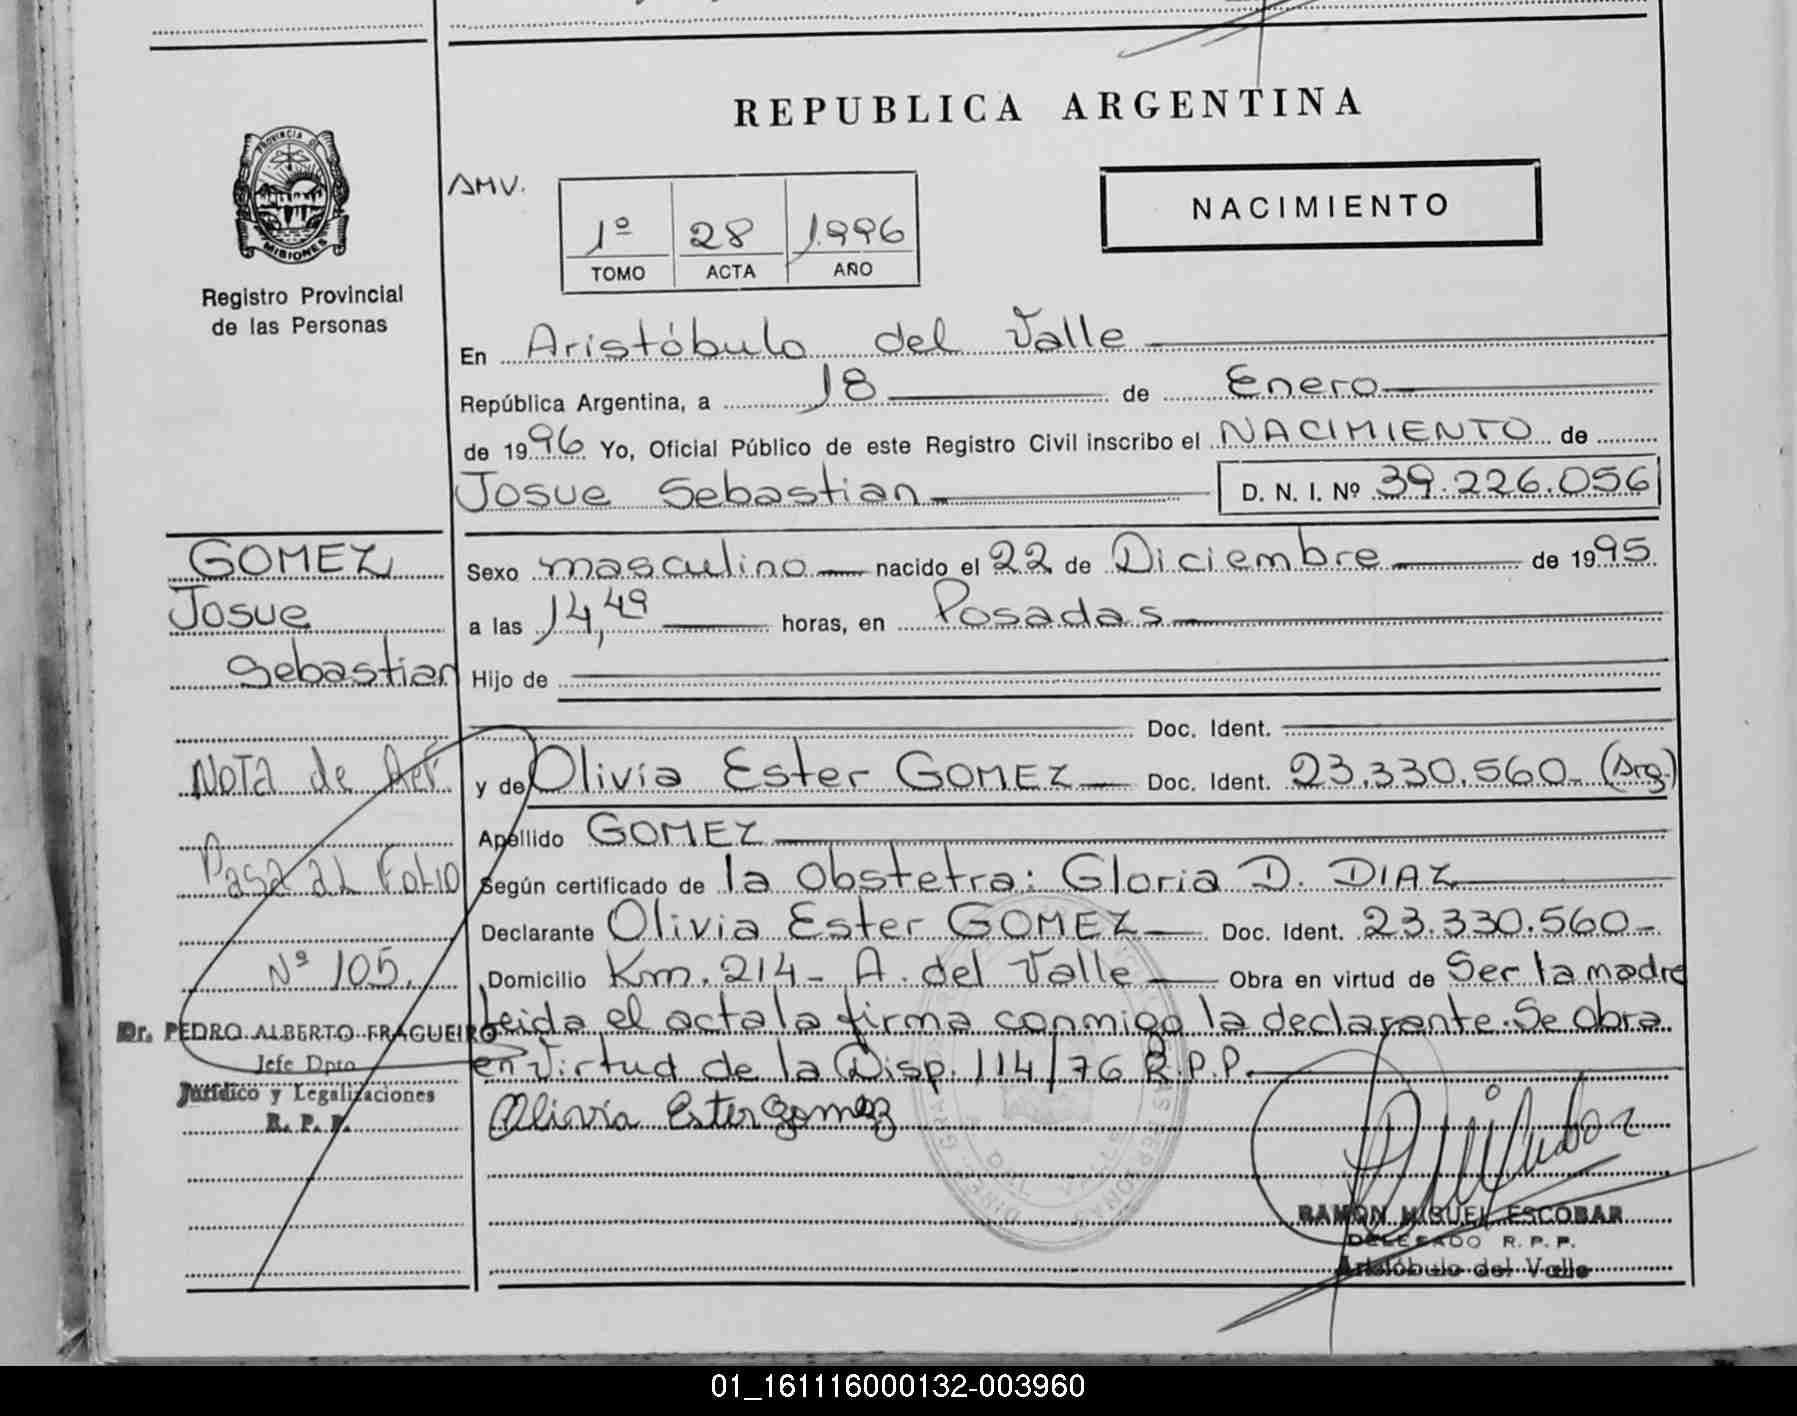 REPUBLICA ARGENTINA
PROVINCIA DE
MISIONES
Registro Provincial
de las Personas
AMV.
1º 28 1996
TOMO ACTA AÑO
NACIMIENTO
En Aristóbulo del Valle
República Argentina, a 18 de Enero
de 1996 Yo, Oficial Público de este Registro Civil inscribo el NACIMIENTO de
Josue Sebastian D. N. I. Nº 39.226.056
GOMEZ
Josue
Sebastian
Sexo masculino nacido el 22 de Diciembre de 1995
a las 14,49 horas, en Posadas
Hijo de
Doc. Ident.
y de Olivia Ester GOMEZ Doc. Ident. 23.330.560 (Arg.)
Apellido GOMEZ
Según certificado de la Obstetra: Gloria D. DIAZ
Declarante Olivia Ester GOMEZ Doc. Ident. 23.330.560
Domicilio Km. 214 - A. del Valle Obra en virtud de Ser la madre
Leida el acta la firma conmigo la declarante. Se obra
en virtud de la Disp. 114/76 R.P.P.
Olivia Ester Gomez
Nota de
Pasa al Folio
Nº 105.
Dr. PEDRO ALBERTO FRAGUEIRO
Jefe Dpto
Jurídico y Legalizaciones
R. P. P.
RAMON MIGUEL ESCOBAR
DELEGADO R. P. P.
Aristóbulo del Valle
01_161116000132-003960